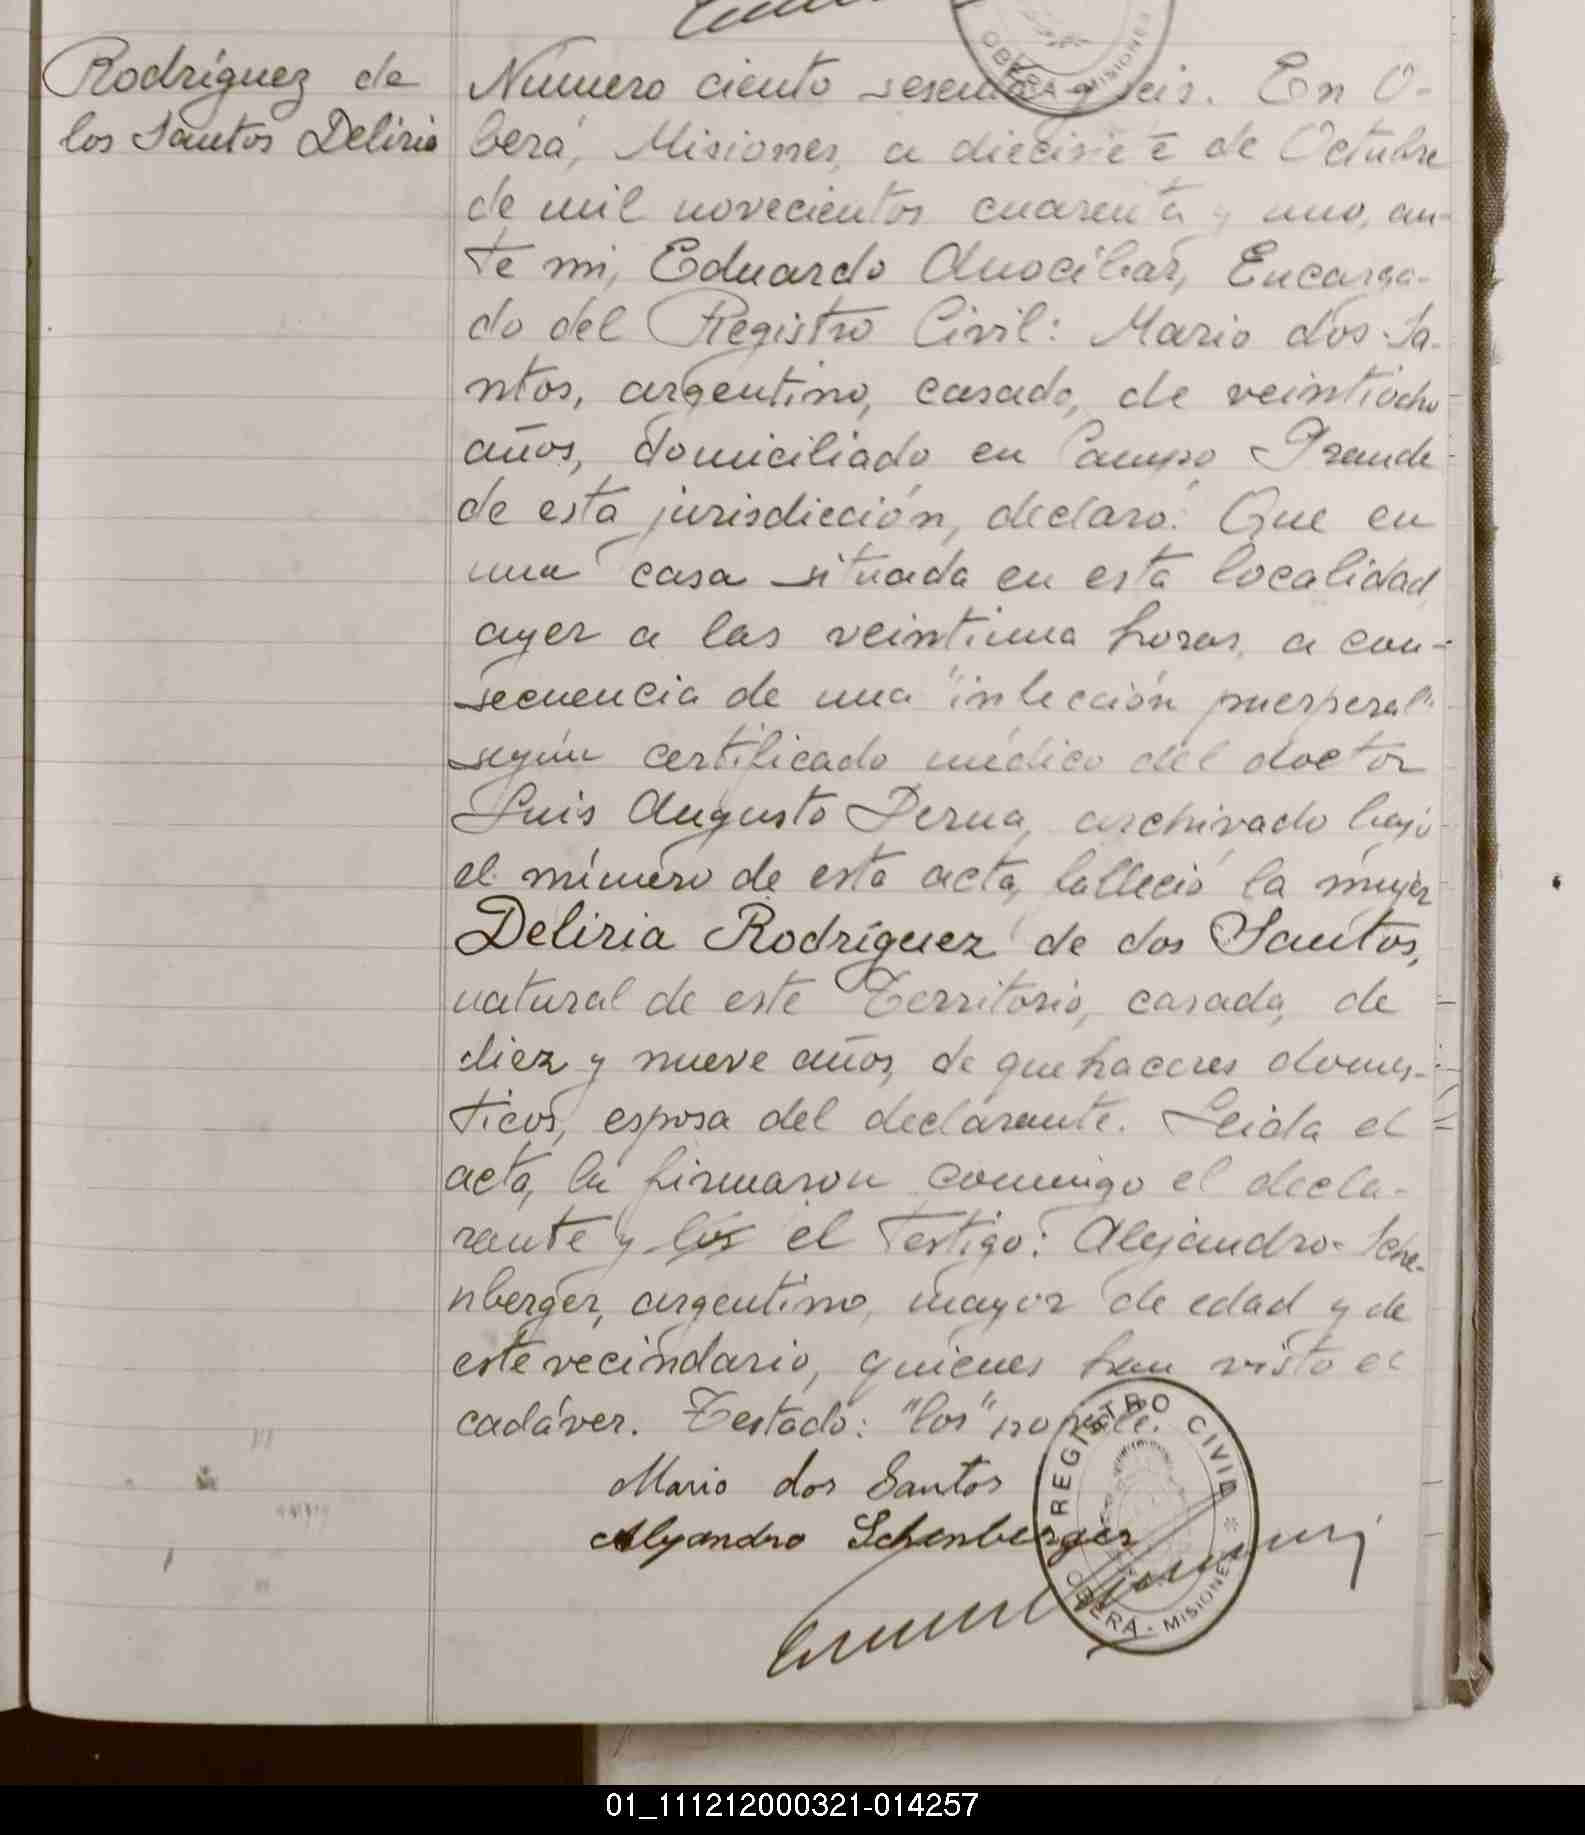 Rodríguez de
los Santos Deliria
OBERÁ - MISIONES
Número ciento sesenta y seis. En O-
berá, Misiones, a diecisiete de Octubre
de mil novecientos cuarenta y uno, an-
te mi, Eduardo Anocibar, Encarga-
do del Registro Civil: Mario dos Sa-
ntos, argentino, casado, de veintiocho
años, domiciliado en Campo Grande
de esta jurisdicción, declaró: Que en
una casa situada en esta localidad
ayer a las veintiuna horas, a con-
secuencia de una "infección puerperal"
según certificado médico del doctor
Luis Augusto Derna, archivado bajo
el número de esta acta, falleció la mujer
Deliria Rodríguez de dos Santos,
natural de este Territorio, casada, de
diez y nueve años, de quehaceres domés-
ticos, esposa del declarante. Leida el
acta, la firmaron conmigo el decla-
rante y los el testigo: Alejandro Sche-
nberger, argentino, mayor de edad y de
este vecindario, quienes han visto el
cadáver. Testado: "los" no vale.
Mario dos Santos
Alejandro Schenberger
REGISTRO CIVIL
OBERÁ - MISIONES
01_111212000321-014257